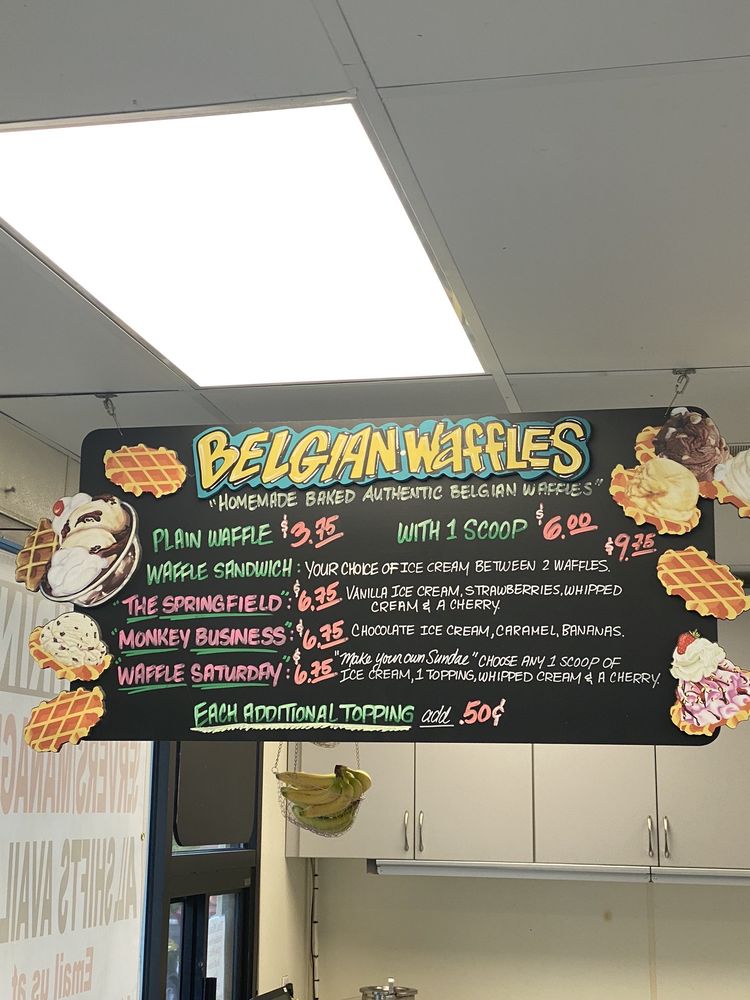 BELGIAN WaffLES
"HOMEMADE BAKED AUTHENTIC BELGIAN WAFFLES"
PLAIN WAFFLE $3.75 WITH 1 SCOOP $6.00
$9.75
WAFFLE SANDWICH: YOUR CHOICE OF ICE CREAM BETWEEN 2 WAFFLES.
"THE SPRINGFIELD": $6.75 VANILLA ICE CREAM, STRAWBERRIES, WHIPPED
CREAM & A CHERRY.
"MONKEY BUSINESS": $6.75 CHOCOLATE ICE CREAM, CARAMEL, BANANAS.
"WAFFLE SATURDAY": $6.75 "Make your own Sundae" CHOOSE ANY 1 SCOOP OF
ICE CREAM, 1 TOPPING, WHIPPED CREAM & A CHERRY.
EACH ADDITIONAL TOPPING add .50¢
ALL SHIFTS AVAIL
Email us at